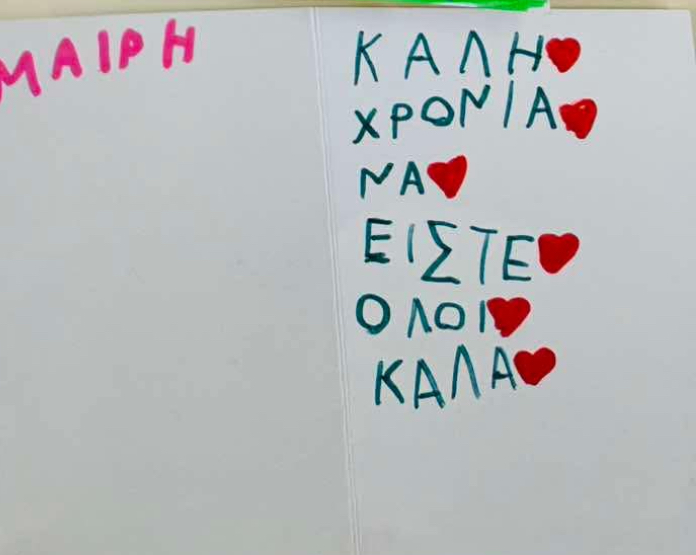 ΜΑΙΡΗ
ΚΑΛΗ
ΧΡΟΝΙΑ
ΝΑ
ΕΙΣΤΕ
ΟΛΟΙ
ΚΑΛΑ